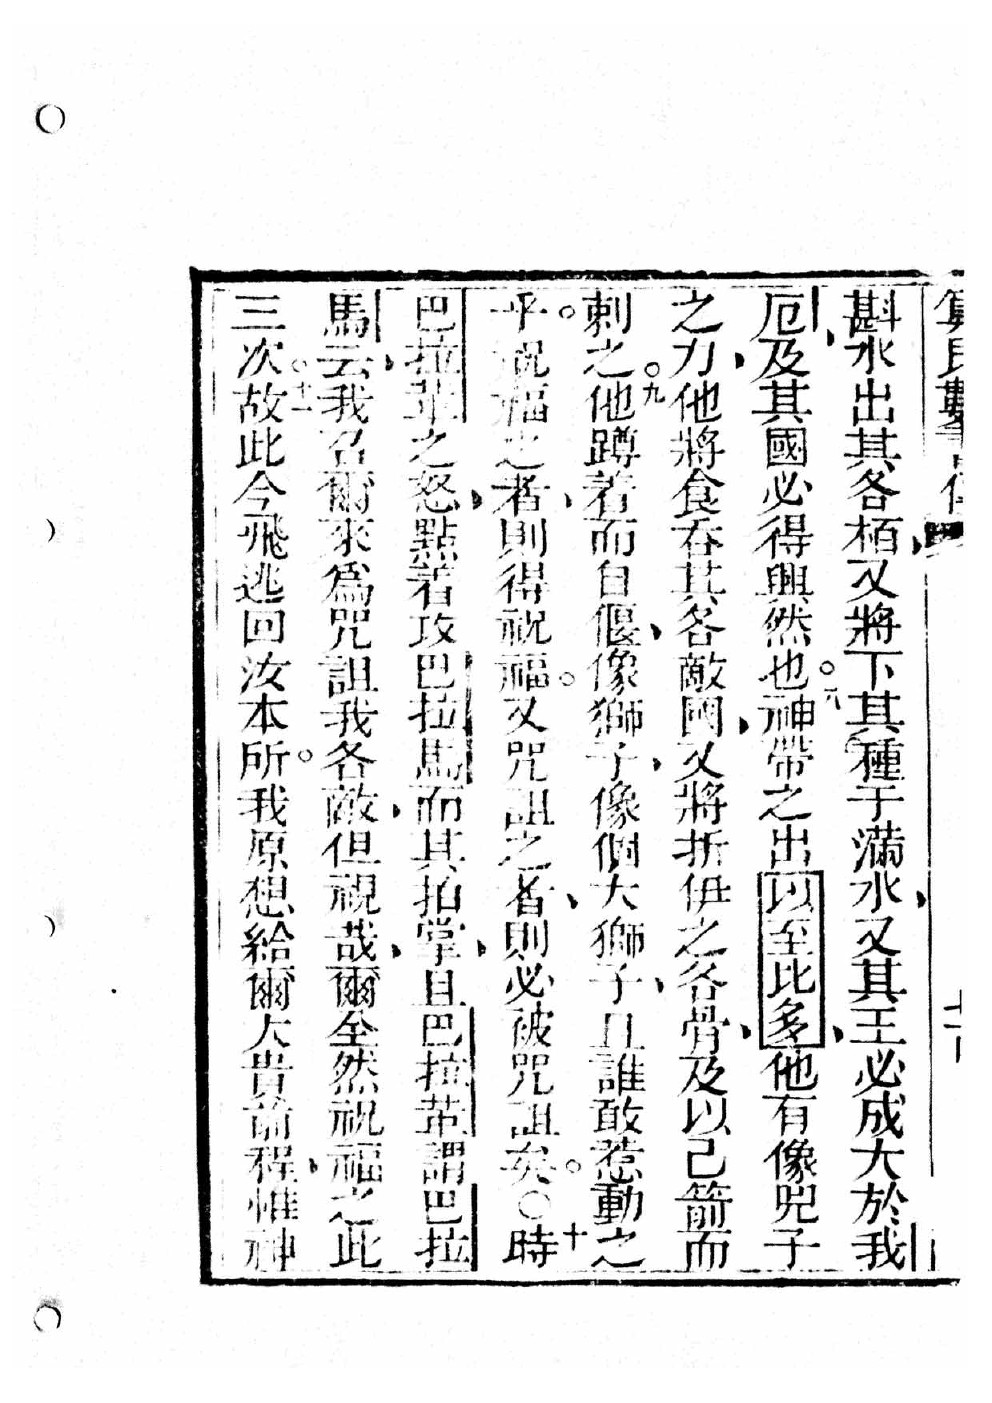 斟水出其各栢又將下其種于滿水又其王必成大於我
厄及其國必得興然也。八神帶之出以至比多他有像兕子
之力他將食吞其各敵國又將折伊之各骨及以己箭而
刺之。九他蹲着而自偃像獅子像個大獅子且誰敢惹動之
乎。祝福之者則得祝福。又咒詛之者則必被咒詛矣。○十時
巴拉革之怒點着攻巴拉馬而其拍掌且巴拉革謂巴拉
馬云我名爾來爲咒詛我各敵但視哉爾全然祝福之此
三次。十一故此今飛逃回汝本所。我原想給爾大貴前程惟神